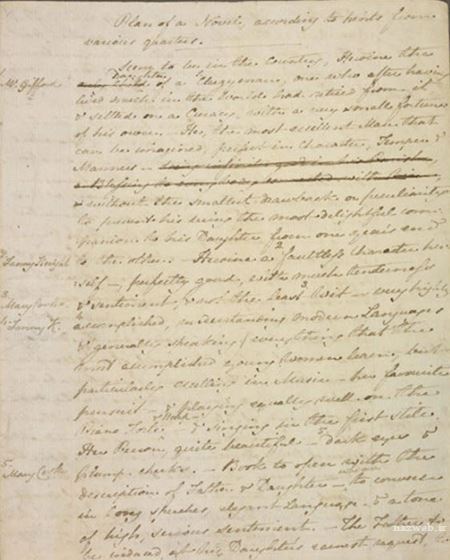 Plan of a Novel, according to hints from
various quarters.
Scene to be in the Country, Heroine the
Mr. Gifford
Daughter of a Clergyman, one who after having
lived much in the World had retired from it
& settled on a Curacy, with a very small fortune
of his own. - He, the most excellent Man that
can be imagined, perfect in Character, Temper &
Manners -
& without the smallest drawback or peculiarity
to prevent his being the most delightful com-
panion to his Daughter from one year's end
to the other. - Heroine a 2 faultless Character her-
2 Fanny Knight
self -, perfectly good, with much tenderness
3 Mary Cooke
& sentiment, & not the least 3 Wit - very highly
4 Fanny K.
4 accomplished, understanding modern Languages
& generally speaking) everything that the
most accomplished young Women learn, but
particularly excelling in Music - her favourite
pursuit - & playing equally well on the
Piano Forte & Harp - & singing in the first stile.
Her Person, quite beautiful - 5 dark eyes &
5 Mary Cooke
plump cheeks. - Book to open with the
description of Father & Daughter - who are to converse
in long speeches, elegant Language - & a tone
of high, serious sentiment. - The Father to
be induced, at his Daughter's earnest request, to
nazweb.ir